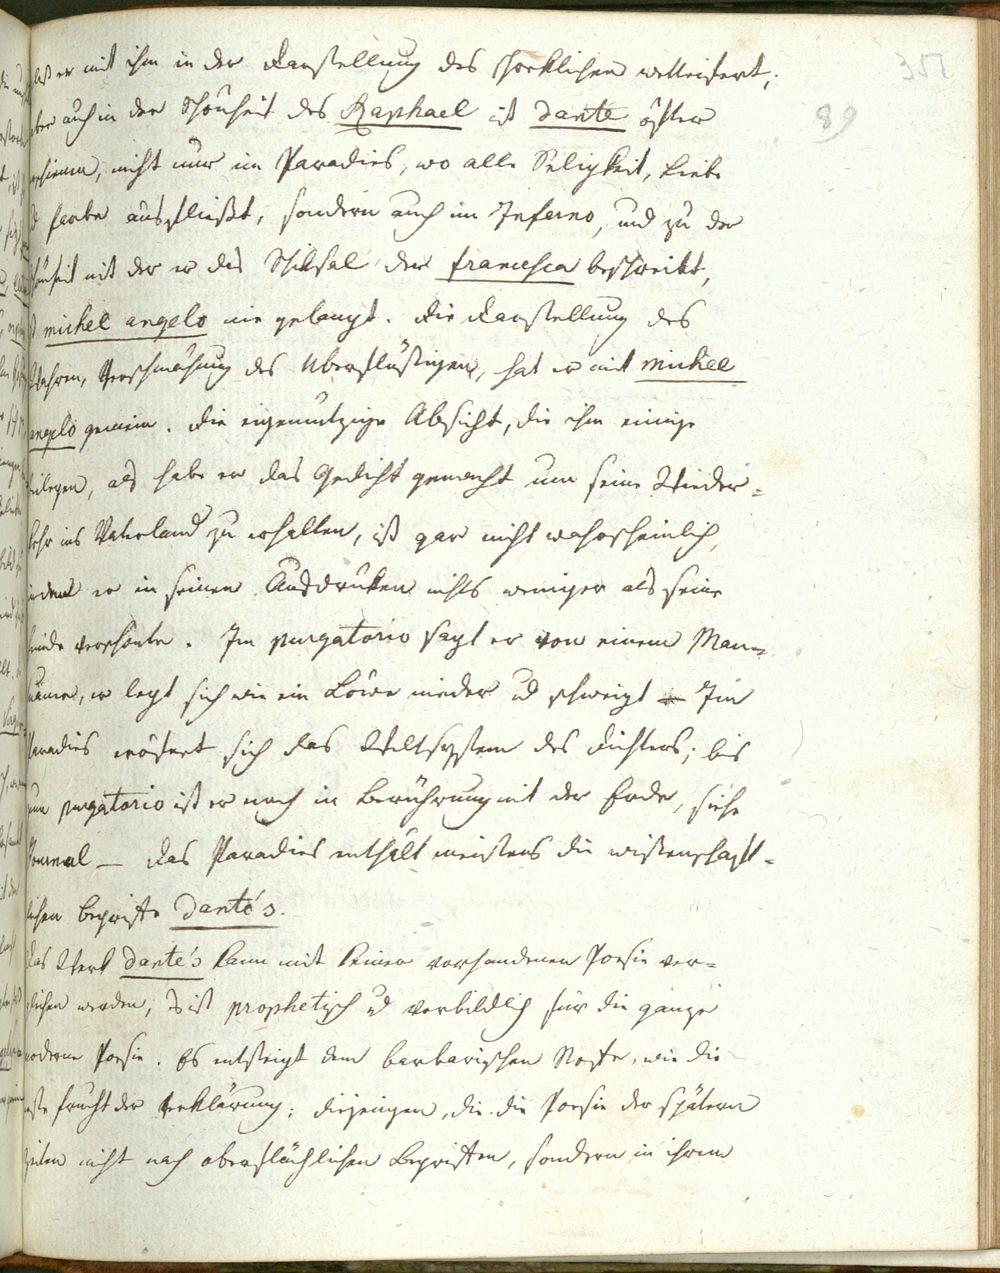 357
89
er mit ihm in der Darstellung des schrecklichen wetteifert;
aber auch in der Schönheit des Raphael ist Dante öfter
erschienen, nicht nur im Paradies, wo alle Seligkeit, Liebe
Farbe ausfließt, sondern auch im Inferno, und zu der
Schönheit mit der er das Schiksal der Francesca beschreibt,
ist michel angelo nie gelangt. Die Darstellung des
Wahren, Verschmähung des Uberflüßigen, hat er mit michel
angelo gemein. Die eigennutzige Absicht, die ihm einige
beilegen, als habe er das Gedicht gemacht um seine Wieder-
kehr ins Vaterland zu erhalten, ist gar nicht wahrscheinlich,
indem er in seinen Ausdruken nichts weniger als seine
Feinde verschonte. Im purgatorio sagt er von einem Man-
tuaner, er legt sich wie ein Löwe nieder ud schweigt – Im
Paradies eröfnet sich das Weltsystem des Dichters; bis
zum purgatorio ist er noch in Berührung mit der Erde, siehe
Journal — das Paradies enthält meistens die wissenschaft-
lichen Begriffe Dante's.
Das Werk Dante's kann mit keiner vorhandenen Poesie ver-
glichen werden, Es ist prophetisch ud vorbildlich für die ganze
moderne Poesie. Es entsteigt dem barbarischen Stoffe, wie die
erste Frucht der Verklärung; diejenigen, die die Poesie der spätern
Zeiten nicht nach oberflächlichen Begriffen, sondern in ihrem